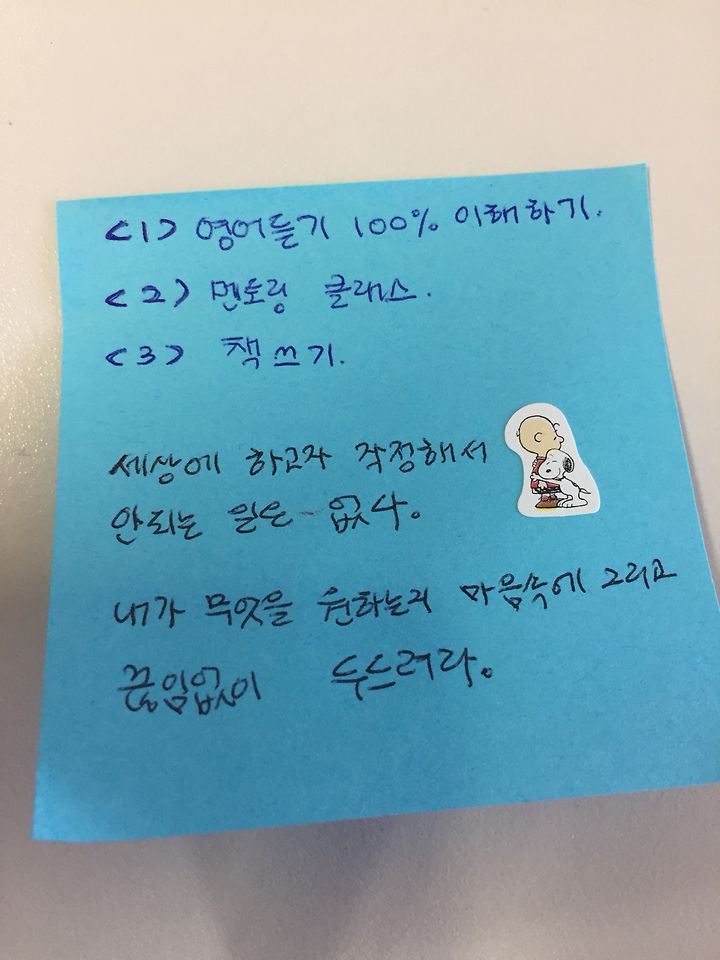 <1> 영어듣기 100% 이해하기.
<2> 멘토링 클래스.
<3> 책 쓰기.
세상에 하고자 작정해서
안되는 일은 없다.
내가 무엇을 원하는지 마음속에 그리고
끊임없이 두드려라.